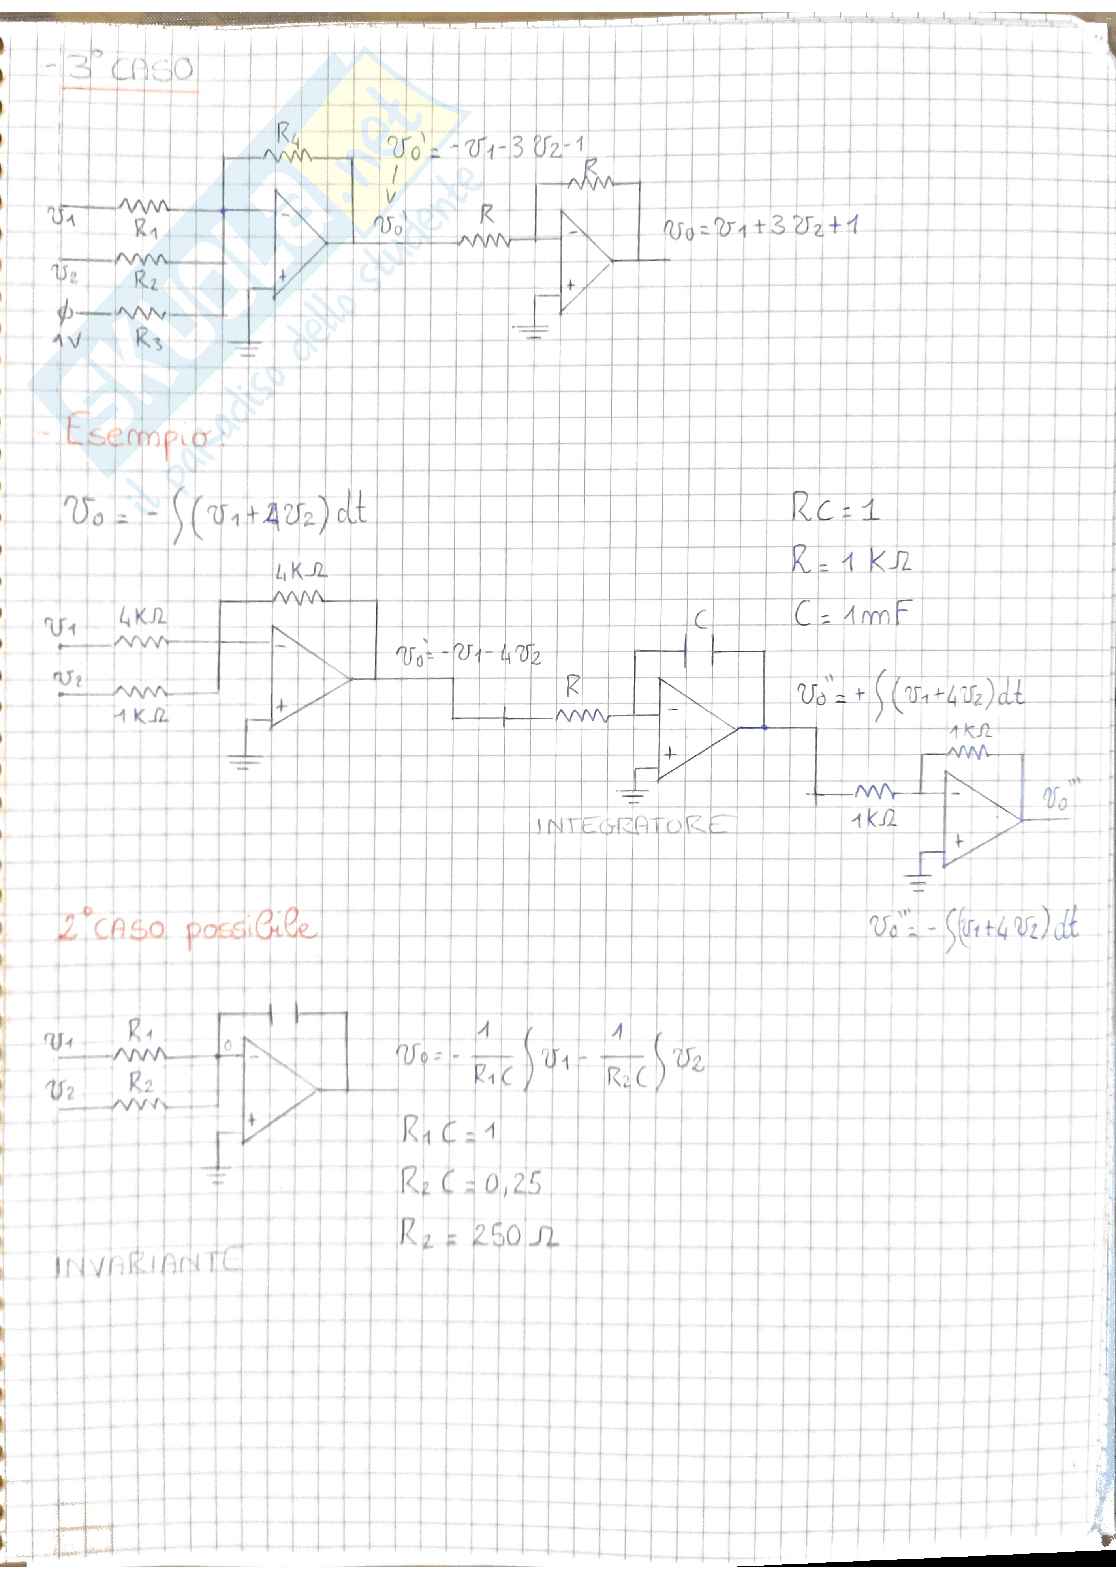 - 3° CASO
R4
v0' = -v1-3v2-1
R
v1
R1
v0'
R
v0 = v1+3v2+1
v2
R2
1V
R3
SKUOLA.net
il paradiso dello studente
- Esempio:
v0 = -∫(v1+4v2)dt
RC = 1
R = 1KΩ
C = 1mF
4KΩ
v1
4KΩ
v2
1KΩ
v0' = -v1-4v2
R
C
INTEGRATORE
v0'' = +∫(v1+4v2)dt
1KΩ
1KΩ
v0'''
v0''' = -∫(v1+4v2)dt
2° CASO possibile
v1
R1
0
v2
R2
v0 = - 1/R1C ∫v1 - 1/R2C ∫v2
R1C = 1
R2C = 0,25
R2 = 250Ω
INVARIANTE